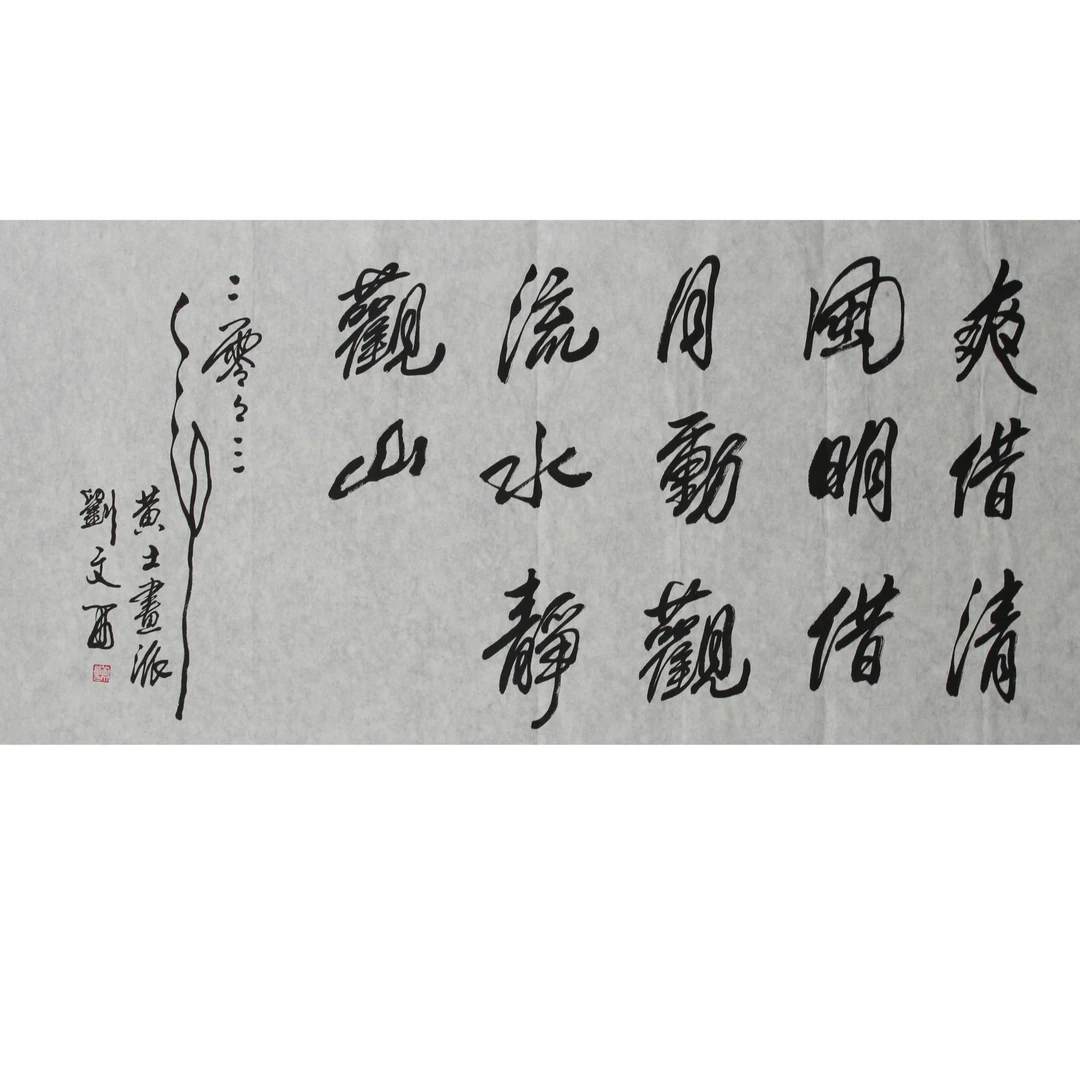 爽借清
風明借
月動觀
流水靜
觀山
二零
黄土畫派
劉文西